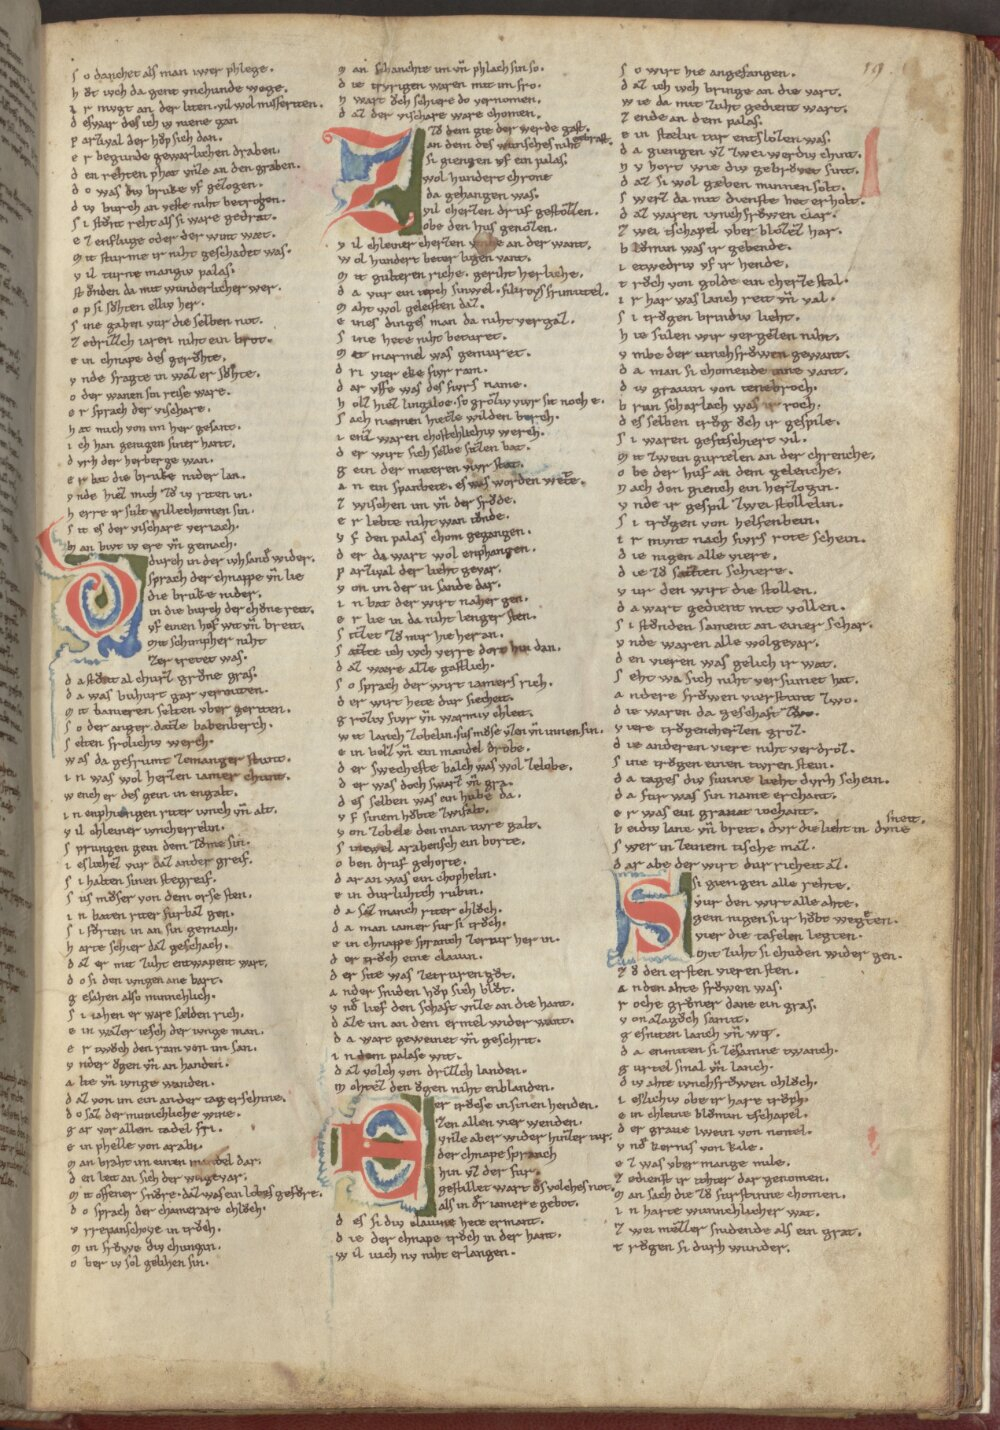 19
s o danchet als man iwer phlege.
h ǒt iwch da gent vnchunde wege.
i r mvgt an der liten. vil wol misseriten.
d eswar des ich iv niene gan
p arzival der hǒp sich dan.
e r begunde gewarlichen draben.
d en rehten phat vnze an den graben.
d o was div bruke vf gezogen.
d iv burch an veste niht betrogen.
s i stǒnt reht als si ware gedrat.
e z enfluge oder der wint wæt.
m it sturme ir niht geschadet was.
v il turne maniv palas.
st ǒnden da mit wunderlicher wer.
o p si sǒhten elliv her.
s ine gaben vur die selben not.
z edrizzich iaren niht ein brot.
e in chnape des gerǒhte.
v nde fragte in waz er sǒhte.
o der wanen sin reise ware.
e r sprach der vischare.
h at mich von im her gesant.
i ch han genigen siner hant.
d vrh der herberge wan.
e r bat die bruke nider lan.
v nde hiez mich zǒ iv riten in.
h erre ir sult willechomen sin.
s it es der vischare veriach.
m an biwt iv ere vñ gemach.
durch in der iwh sandǒ wider.
sprach der chnappe vñ lie
die bruke nider.
in die burch der chǒne reit.
vf einen hof wit vñ breit.
mit schimpher niht
zer tretet was.
d a stǒnt al churz grǒne gras.
d a was buhurt gar vermiten.
m it banieren selten vber geriten.
s o der anger datze babenberch.
s elten frolichiv werch.
w as da gefrumt zemanger stunt.
i n was wol herzen iamer chunt.
w ench er des gein in engalt.
i n enphiengen riter ivnch vñ alt.
v il chleiner ivncherrelin.
s prungen gein dem zǒme sin.
i eslichez vur daz ander greif.
s i habten sinen stegreif.
s us mǒser von dem orse sten.
i n baten riter furbaz gen.
s i fǒrten in an sin gemach.
h arte schier daz geschach.
d az er mit zuht entwapent wart.
d o si den ivngen ane bart.
g esahen also minnechlich.
s i iahen er ware sælden rich.
e in wazer iesch der ivnge man.
e r twǒch den ram von im san.
v nder ǒgen vñ an handen.
a lte vñ ivnge wanden.
d az von im ein ander tag erschine.
d o saz der minnechliche wine.
g ar vor allem tadel fri.
e in phelle von arabi.
m an braht im einen mantel dar.
d en leit an sich der wolgevar.
m it offener snǒre. daz was ein lobes gefǒre.
d o sprach der chamerare chlǒch.
v rrepanschoye in trǒch.
m in frǒwe div chungin.
o ber iv sol gelihen sin.
m an schanchte im vñ phlach sin so.
d ie trvrigen waren mit im fro.
n v wart ǒch schiere do vernomen.
d az der vischare ware chomen.
Zǒ dem gie der werde gast.
an dem des wunsches niht gebrast.
si giengen vf ein palas.
wol hundert chrone
da gehangen was.
vil cherzen druf gestozzen.
obe den hus genozen.
v il chleiner cherzen vmbe an der want.
w ol hundert bette ligen vant.
m it gulteren riche. geriht herliche.
d a vur ein tepch sinwel. filliroys frimutel.
m aht wol geleisten daz.
e ines dinges man da niht vergaz.
s ine hete niht beturet.
m it marmel was gemuret.
d ri vier eke fiwr ram.
d ar vffe was des fivrs name.
h olz hiez lingaloe. so grǒziv viwr sit noch e.
s ach niemen hie ze wilden berch.
i eniv waren chostchlichiv werch.
d er wirt sich selbe sezzen bat.
g ein der mitteren viwr stat.
a n ein spanbette. es was worden wette.
z wischen im vñ der frǒde.
e r lebte niht wan tǒnde.
v f den palas chom gegangen.
d er da wart wol enphangen.
p arzival der lieht gevar.
v on im der in sande dar.
i n bat der wirt naher gen.
e r lie in da niht lenger sten.
s itzet zǒ mir hie her an.
s atzte ich iwch verre dort hin dan.
d az wære alle gastlich.
s o sprach der wirt iamers rich.
d er wirt hete dur siecheit.
g rǒziv fivr vñ warmiv chleit.
w it lanch zobelin. sus mǒse vzen vñ innen sin.
e in bellz vñ ein mandel drobe.
d er swecheste balch was wol zelobe.
d er was doch swarz vñ gra.
d es selben was ein hube da.
v f sinem hǒbte zwifalt.
v on zobele den man tivre galt.
s inewel arabensch ein borte.
o ben druf gehorte.
d ar an was ein chophelin.
e in durluhtch rubin.
d a saz manch riter chlǒch.
d a man iamer fur si trǒch.
e in chnappe spranch zertur her in.
d er trǒch eine glavin.
d er site was zetruren gǒt.
a nder sniden hǒp sich blǒt.
v nǒ lief den schaft vnze an die hant.
d aze im an dem ermel wider want.
d a wart geweinet vñ geschrit.
i n dem palase wit.
d az volch von drizzich landen.
m ohtez den ǒgen niht enblanden.
Er trǒchse in sinen henden.
zen allen vier wenden.
vnze aber wider hinzer tur.
der chnappe spranch
hin vz der fur.
gestillet wart ds volches not.
als in ǒr iamer e gebot.
d es si div glavine hete ermant.
d ie der chnape trǒch in der hant.
w il iuch nv niht erlangen.
s o wirt hie angefangen.
d az ich iwch bringe an die vart.
w ie da mit zuht gedient wart.
z ende an dem palas.
e in stæhlin tur entslozen was.
d a giengen vz zwei werdiv chint.
n v hort wie div gebrǒvet sint.
d az si wol gæben minnen solt.
s werz da mit dienste het erholt.
d az waren ivnchfrǒwen clar.
z wei tschapel vber blozez har.
b lǒmin was ir gebende.
i etwedriv vf ir hende.
t rǒch von golde ein cherze stal.
i r har was lanch reit vñ val.
s i trǒgen brindiv lieht.
h ie sulen wir vergezen niht.
v mbe der ivnchfrǒwen gewant.
d a man si chomende inne vant.
d iv gravin von tenebroch.
b run scharlach was ir roch.
d es selben trǒg ǒch ir gespile.
s i waren gefischiert vil.
m it zwein gurtelen an der chrenche.
o be der huf an dem gelenche.
n ach don giench ein herzogin.
v nde ir gespil zwei stollelin.
s i trǒgen von helfenbein.
i r mvnt nach fivrs rote schein.
d ie nigen alle viere.
d ie zǒ sazten schiere.
v ur den wirt die stollen.
d a wart gedient mit vollen.
s i stǒnden sament an einer schar.
v nde waren alle wolgevar.
d en vieren was gelich ir wat.
s eht wa sich niht versumet hat.
a ndere frǒwen vierstunt zwo.
d ie waren da geschaft zǒ.
v iere trǒgen cherzen grǒz.
d ie anderen viere niht verdrǒz.
s ine trǒgen einen tiuren stein.
d a tages div sunne lieht dvrh schein.
d a fur was sin name erchant.
e r was ein granat iochant.
b eidiv lanc vñ breit. dvr die lieht in dvne sneit.
s wer in zeinem tische maz.
d ar abe der wirt dur richeit az.
Si giengen alle rehte.
vur den wirt alle ahte.
gein nigen si ir hǒbt wegten.
vier die tafelen legten.
mit zuht si chuden wider gen.
z ǒ den ersten vieren sten.
a n den ahte frǒwen was.
r oche grǒner dane ein gras.
v on azagǒch samit.
g esniten lanch vñ wit.
d a enmiten si zesamne twanch.
g urtel smal vñ lanch.
d iv ahte ivnchfrǒwen chlǒch.
i eslichiv obe ir hare trǒch.
e in chleine blǒmin tschapel.
d er grave Iwein von nonel.
v nǒ kernis von kile.
e z was vber mange mile.
z edienst ir tohter dar genomen.
m an sach die zǒ furstinne chomen.
i n harte wunnchlicher wat.
z wei mezzer snidende als ein grat.
t rǒgen si durh wunder.